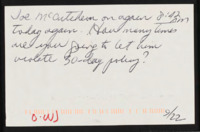 Joe McCutcheon on again 
today again. How many times
are you going to let him
violate 30-day policy?
O-WJ
3/22